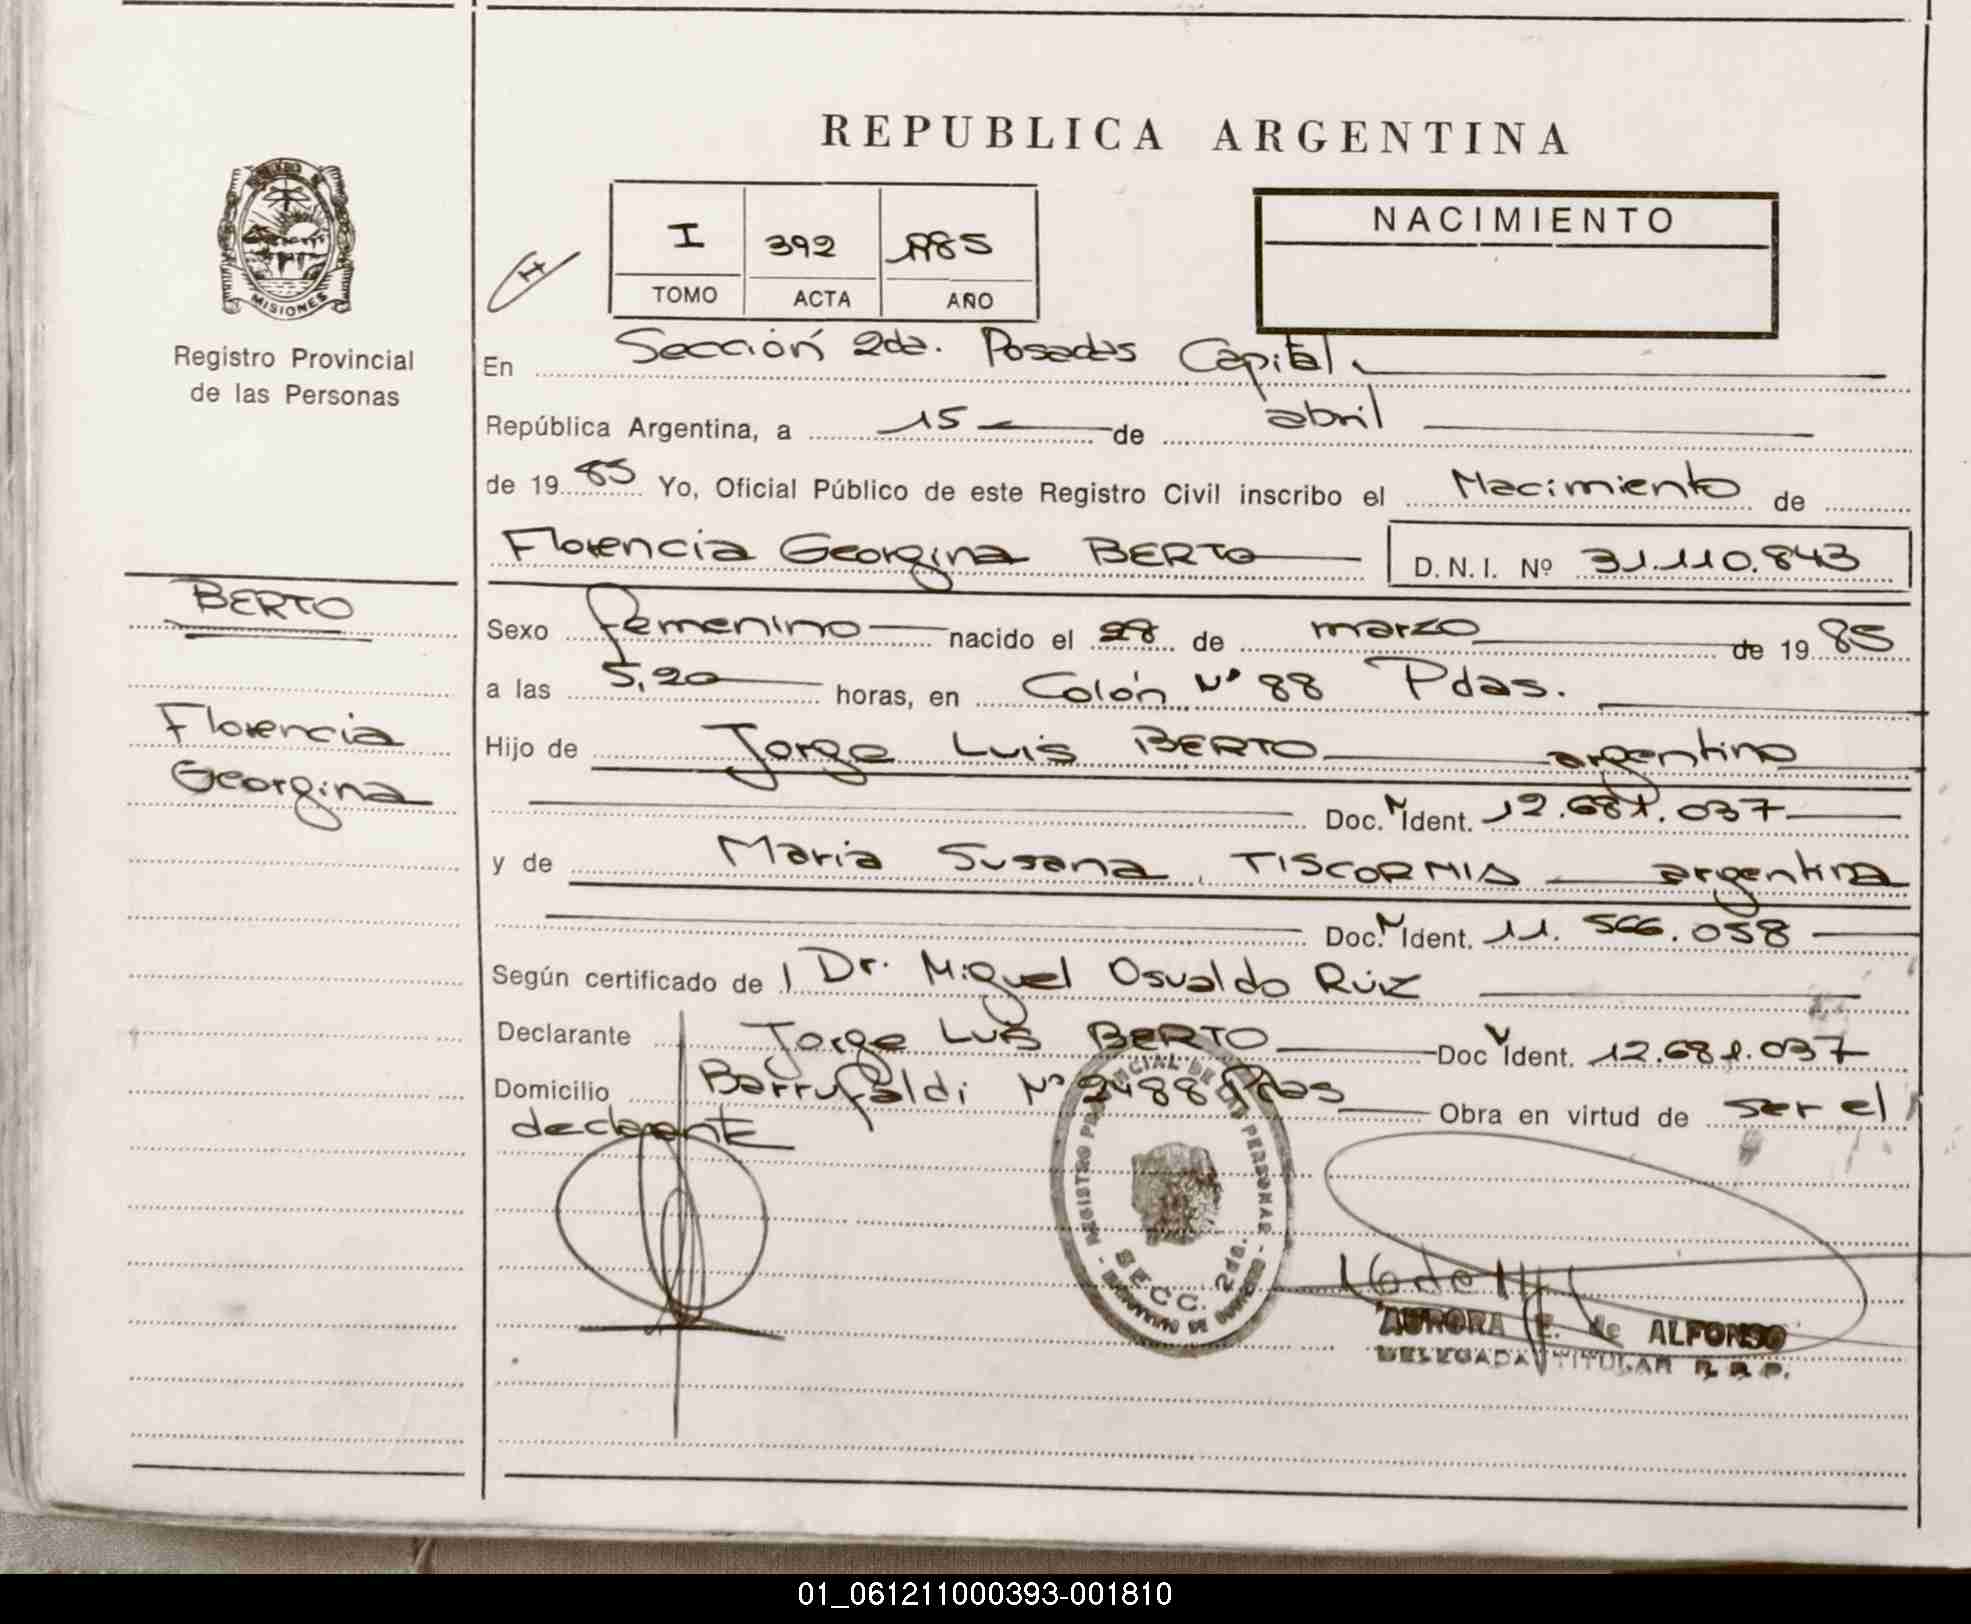 REPUBLICA ARGENTINA
I 392 1985
TOMO ACTA AÑO
NACIMIENTO
MISIONES
Registro Provincial
de las Personas
En Sección 2da. Posadas Capital.
República Argentina, a 15 de abril
de 19 85 Yo, Oficial Público de este Registro Civil inscribo el Nacimiento de
Florencia Georgina BERTO D.N.I. Nº 31.110.843
BERTO
Florencia
Georgina
Sexo femenino nacido el 28 de marzo de 19 85
a las 5,20 horas, en Colón Nº 88 Pdas.
Hijo de Jorge Luis BERTO argentino
Doc. N Ident. 12.681.037
y de Maria Susana TISCORNIA argentina
Doc. N Ident. 11.566.058
Según certificado de l Dr. Miguel Osvaldo Rúiz
Declarante Jorge Luis BERTO Doc N Ident. 12.681.037
Domicilio Barrufaldi Nº 2488 Pdas Obra en virtud de ser el
declarante
REGISTRO PROVINCIAL DE LAS PERSONAS
SECC. 2da.
AURORA E. de ALFONSO
DELEGADA TITULAR R. P. P.
01_061211000393-001810